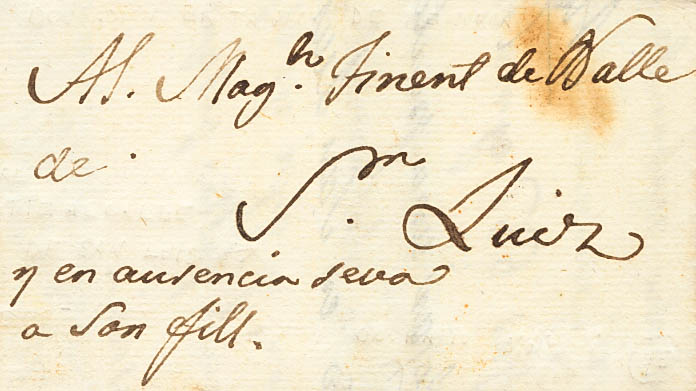 Al. Mag.ch Tinent de Batlle
de.
S.n Luiz
y en ausencia seva
a son fill.